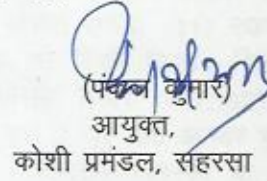 (पंकज कुमार)
आयुक्त,
कोशी प्रमंडल, सहरसा